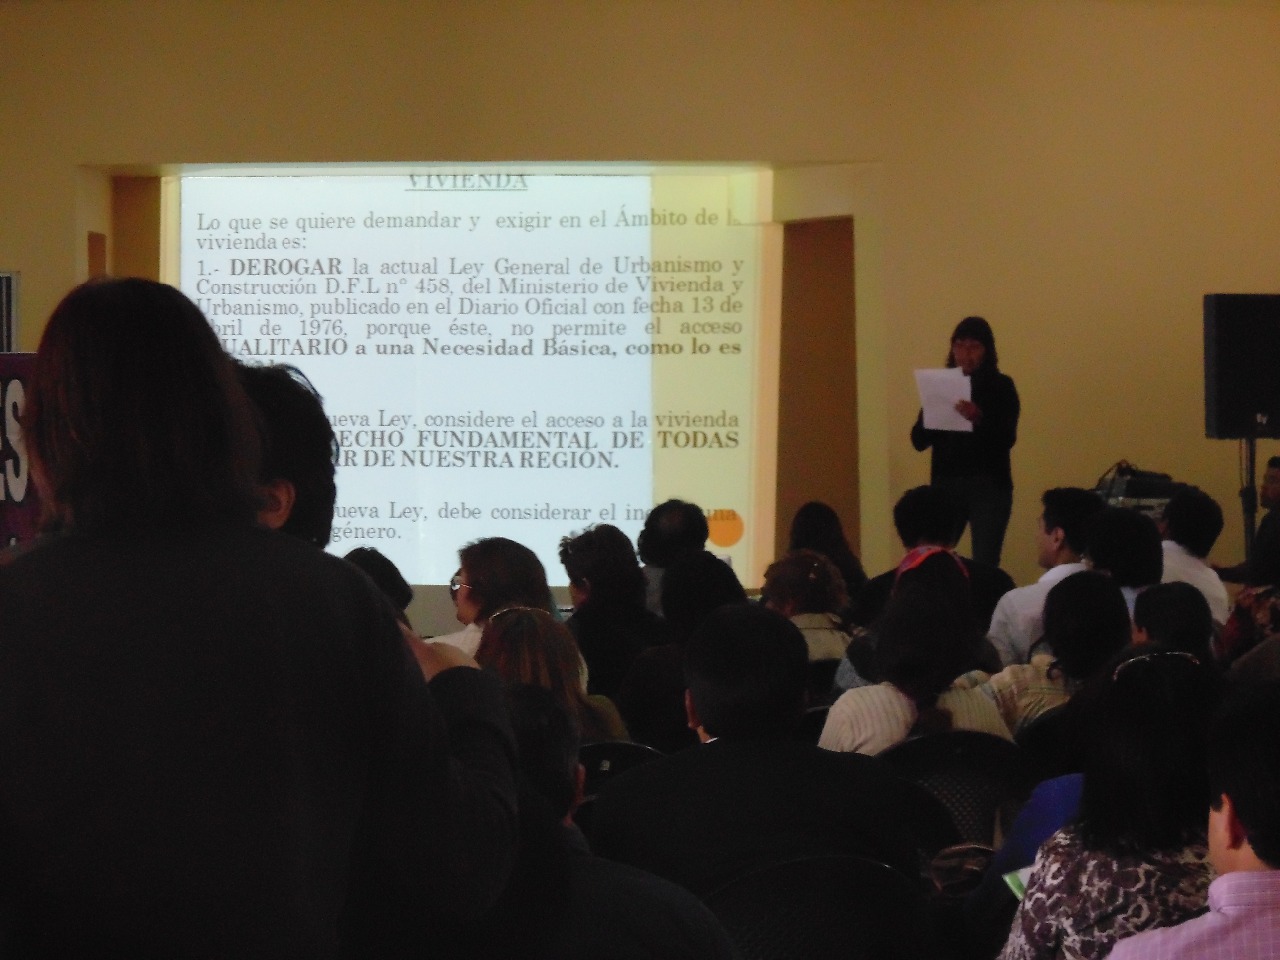 VIVIENDA
Lo que se quiere demandar y exigir en el Ámbito de
vivienda es:
1.- DEROGAR la actual Ley General de Urbanismo y
Construcción D.F.L n° 458, del Ministerio de Vivienda y
Urbanismo, publicado en el Diario Oficial con fecha 13 de
bril de 1976, porque éste, no permite el acceso
UALITARIO a una Necesidad Básica, como lo es
ueva Ley, considere el acceso a la vivienda
ECHO FUNDAMENTAL DE TODAS
AR DE NUESTRA REGIÓN.
ueva Ley, debe considerar el
género.
ES